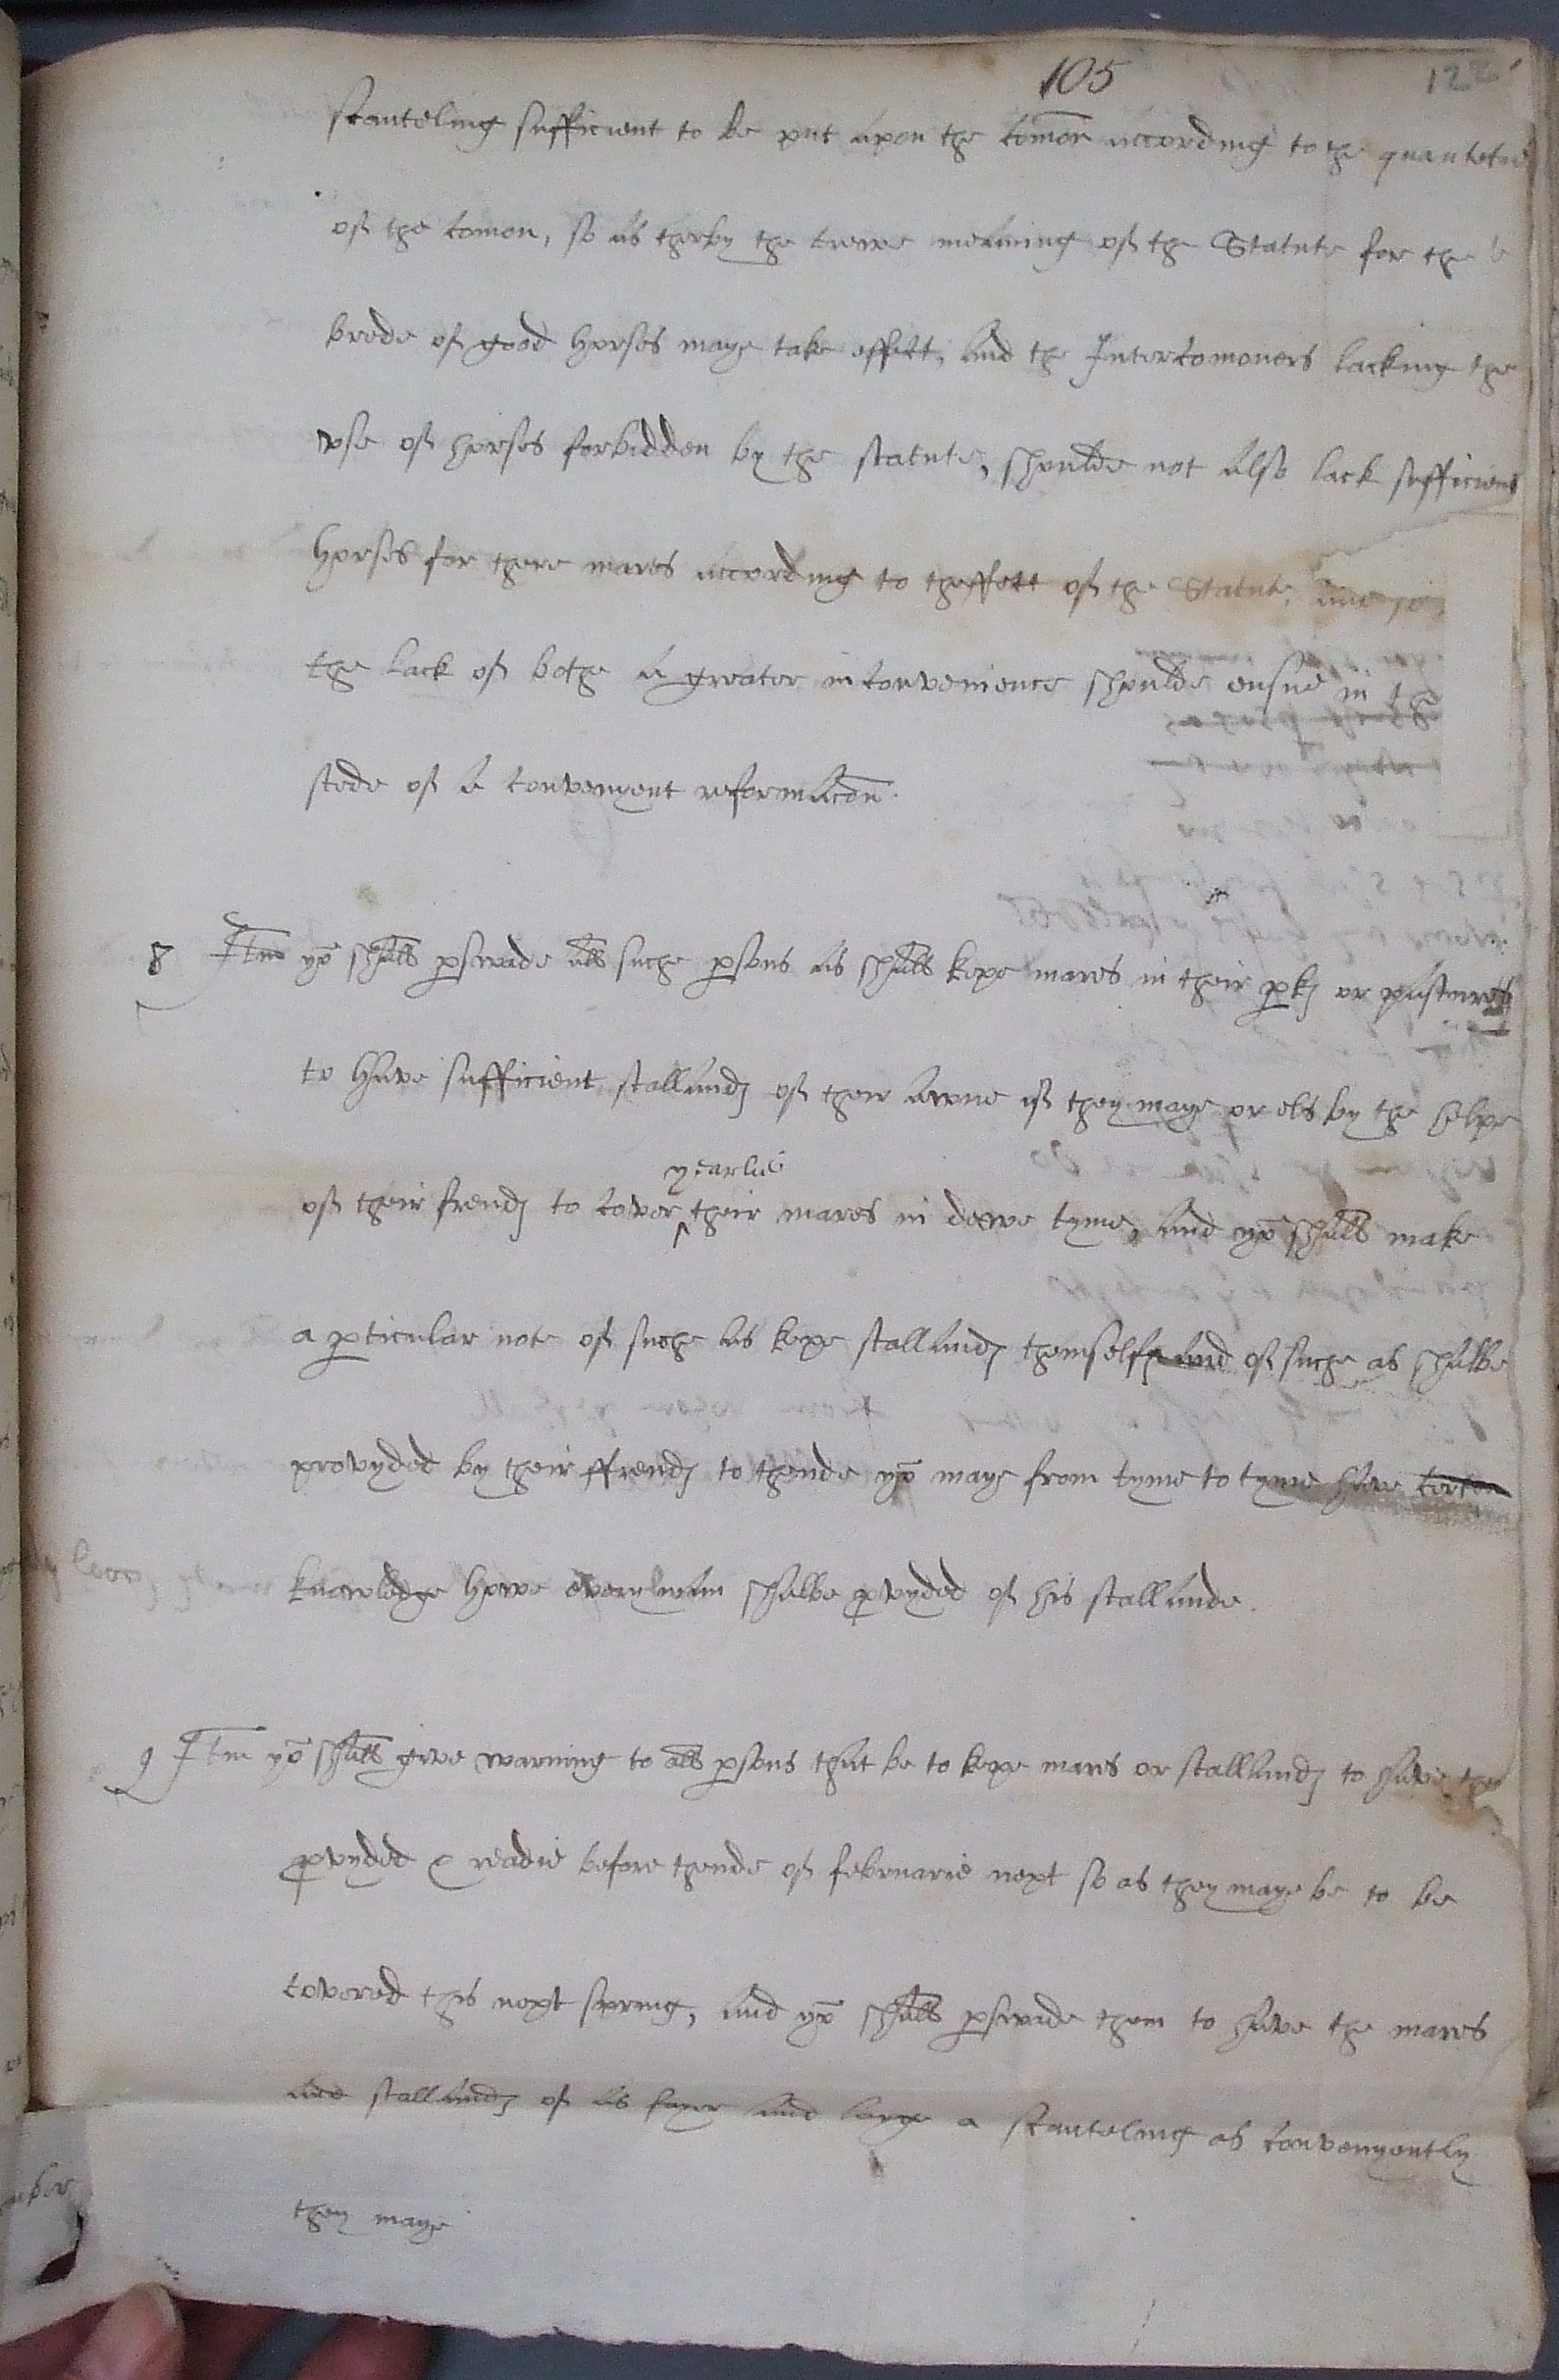 105
122
scanteling sufficient to be put upon the com̄on according to the quantetie
of the comon, so as therby the trewe meaning of the Statute for the
brede of good horses maye take effect, and the Intercomoners lacking the
vse of horses forbidden by the statute, shoulde not also lack sufficient
horses for there mares according to theffect of the Statute, and so
the lack of bothe a greater inconvenience shoulde ensue in the
stede of a convenyent reformac̄on.
8 Itm̄ yo shall pswade all suche psons as shall kepe mares in their pks or pastures
to have sufficient stallands of their awne if they maye or els by the helpe
yearlie
of their frends to cover ^ their mares in dewe tyme, and yo shall make
a pticular note of suche as kepe stallands themselfs and of suche as shalbe
provyded by their ffrends to thende yo maye from tyme to tyme have certen
knowledge howe every man shalbe pvyded of his stallande.
9 Itm̄ yo shall give warning to all psons that be to kepe mares or stallands to have the
pvyded & readie before thende of februarie next so as they maye be to be
covered this next spring, and yo shall pswade them to have the mares
and stallands of as fayre and large a scanteling as convenyently
they maye